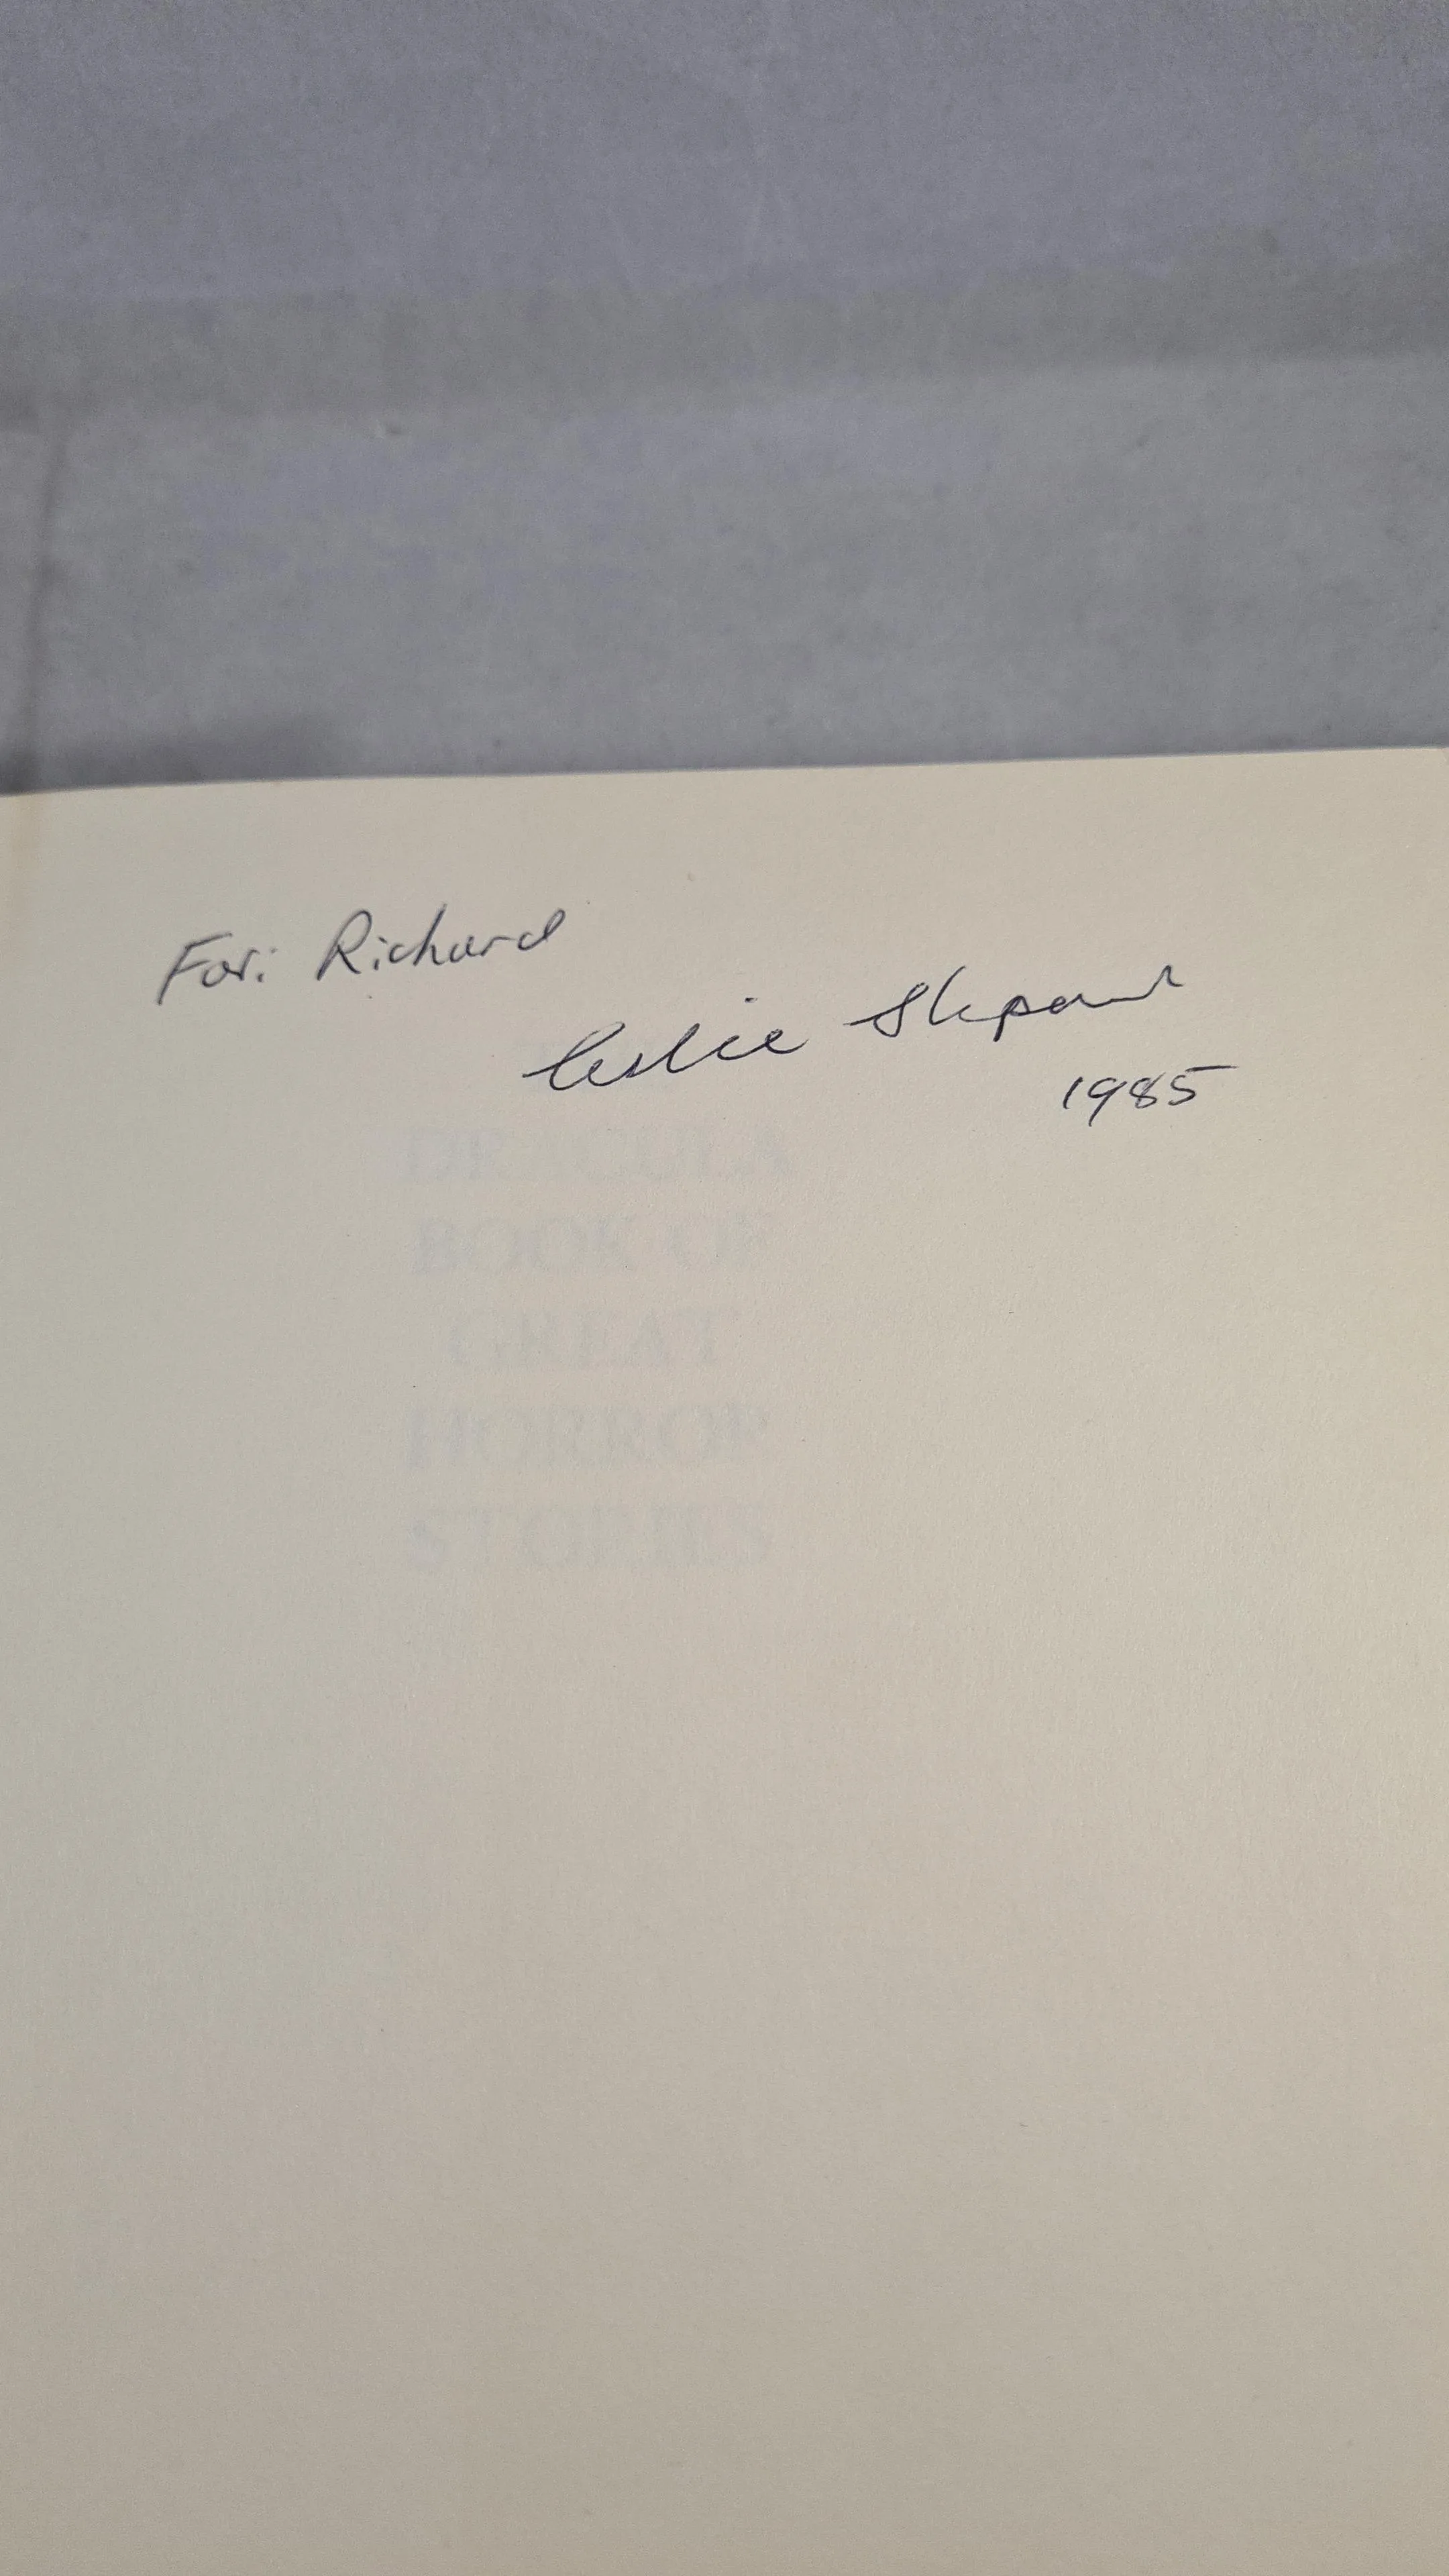 For: Richard
Leslie Shepard
1985
THE
DRACULA
BOOK OF
GREAT
HORROR
STORIES